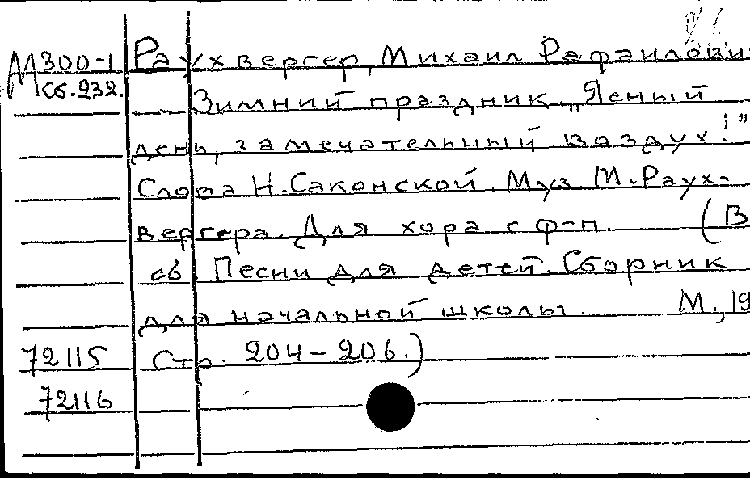 М300-1 Раухвергер, Михаил Рафаилови
сб.232. Зимний праздник „Ясный
день, замечательный воздух!"
Слова Н.Саконской. Муз М.Раух-
вергера. Для хора с ф-п. (В
сб Песни для детей. Сборник
для начальной школы. М., 19
72115 Стр. 204-206.)
72116